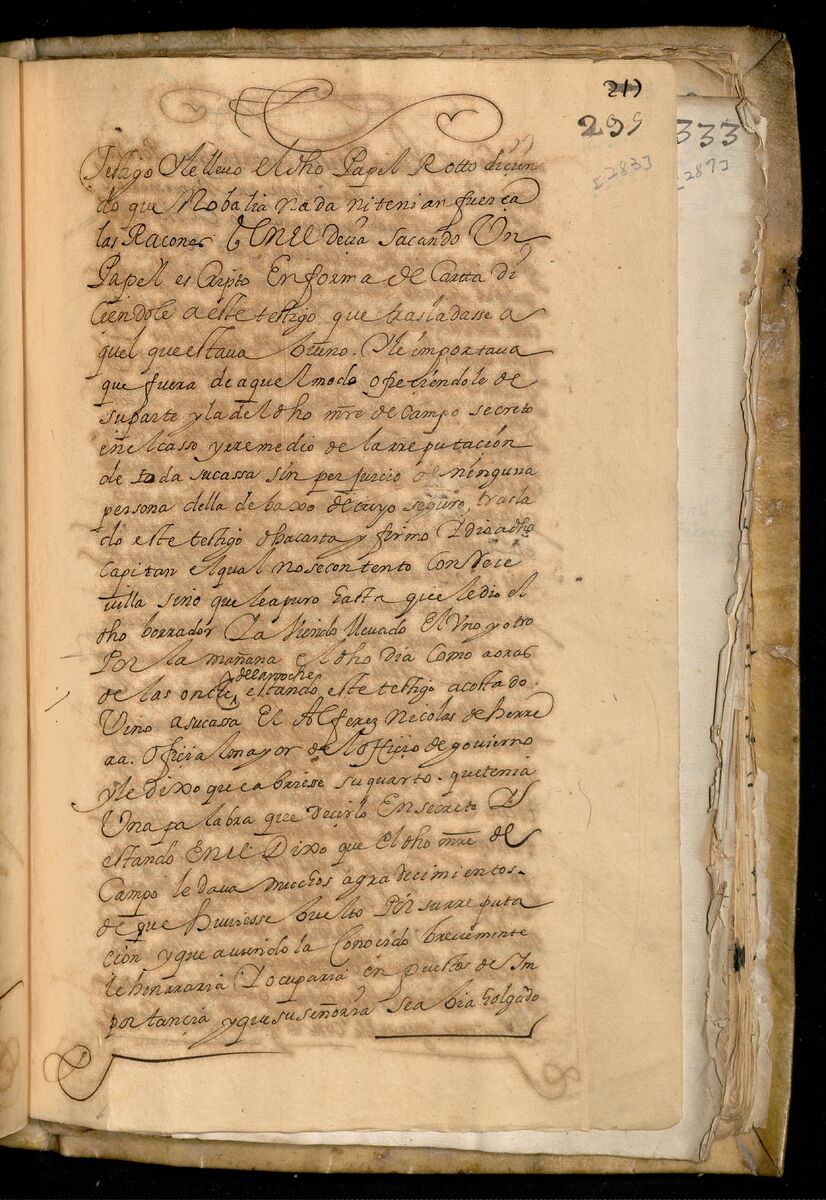 211
299
333
[283]
[287]
Testigo Y le lleuo el dho Papel Rotto dicien
do que No balia nada ni tenian fuerca
las Racones Y en el decia sacando Un
Papel escripto En forma de Cartta di
ciendole a este testigo que trasladasse a
quel que estaua bueno. Y le importaua
que fuera de aquel modo ofreciendole de
su parte y la del dho mre de campo secreto
en el casso y rremedio de la rreputación
de toda su cassa sin perjuicio de ninguna
persona della debaxo de cuyo seguro, trasla
do este testigo dha carta y firmo Y dio a dho
Capitan el qual no se contento Con Rece
uilla sino que le apuro hasta que le dio el
dho borrador Y abiendo lleuado El Uno y otro
Por la mañana el dho dia como a oras
de la noche
de las once, estando este testigo acostado.
Vino a su cassa El Alferez Nicolas de herre
ra. oficial mayor del officio de gouierno
y le dixo que abriesse su quarto. que tenia
Una palabra que decirlo En secreto Y
estando En el Dixo que El dho mre de
Campo le daua muchos agradecimientos.
de que huuiesse buelto Por su rreputa
ción y que auiendola Conocido breuemente
le honrraria Y ocuparia en puestos de Im
portancia y que su señoria se abia holgado